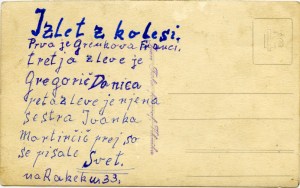 Izlet z kolesi.
Prva je Grenkova Franci.
tretja z leve je
Gregorič Danica
peta z leve je njena
sestra Ivanka
Martinčič prej so
se pisale Svet.
na Rakeku 33.